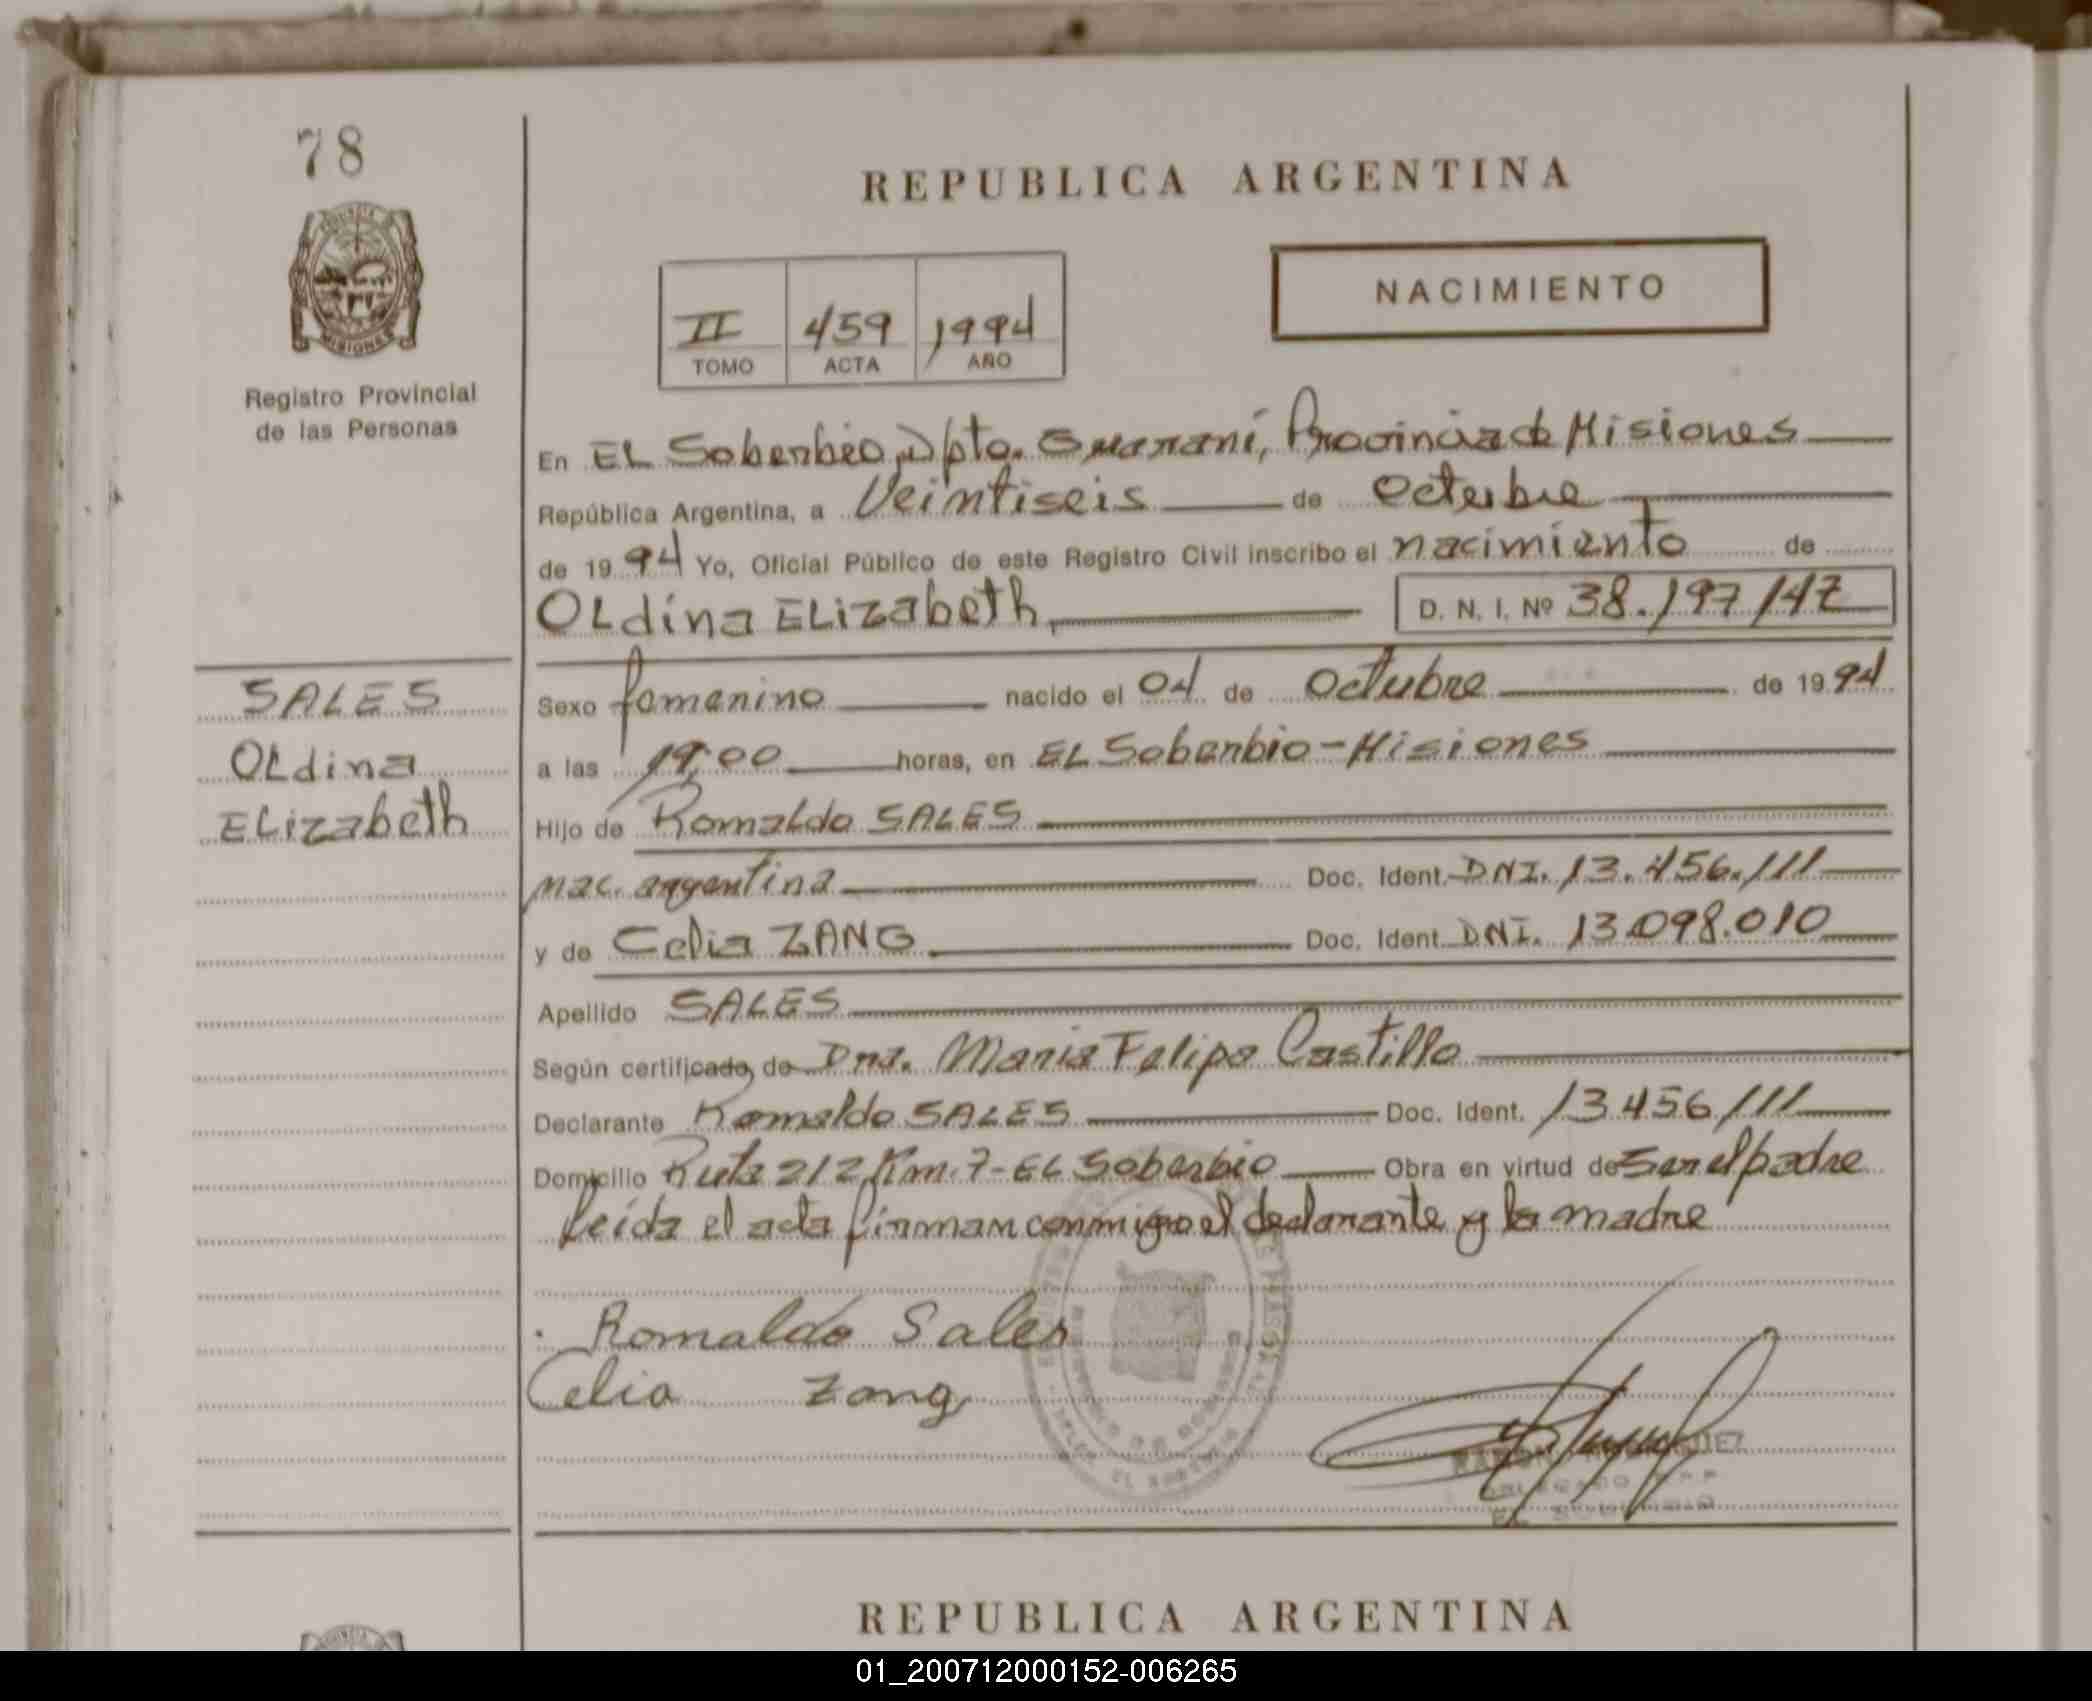 78
PROVINCIA DE
MISIONES
Registro Provincial
de las Personas
REPUBLICA ARGENTINA
NACIMIENTO
II 459 1994
TOMO ACTA AÑO
En EL Soberbio, Dpto. Guaraní, Provincia de Misiones
República Argentina, a Veintiseis de Octubre
de 1994 Yo, Oficial Público de este Registro Civil inscribo el nacimiento de
OLdina ELizabeth, D. N. I. Nº 38.197.147
SALES
OLdina
ELizabeth
Sexo femenino nacido el 04 de Octubre de 1994
a las 19,00 horas, en EL Soberbio - Misiones
Hijo de Romaldo SALES
nac. argentina Doc. Ident. DNI. 13.456.111
y de Celia ZANG Doc. Ident. DNI. 13.098.010
Apellido SALES
Según certificado de Dna. Maria Felipa Castillo
Declarante Romaldo SALES Doc. Ident. 13.456.111
Domicilio Ruta 212 Km. 7 - EL Soberbio Obra en virtud de Ser el padre
leida el acta firman conmigo el declarante y la madre
Romaldo Sales
Celia Zang
EL SOBERBIO
REPUBLICA ARGENTINA
01_200712000152-006265